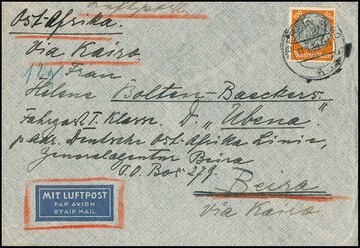 Luftpost
Ostafrika.
Via Kairo
Frau
Helene Bolten-Baeckers
Fahrgast I. Klasse. D. „Ubena"
p. adr. Deutsche Ost-Afrika Linie,
Generalagentur Beira
P.O. Box 279.
Beira
Via Kairo
MIT LUFTPOST
PAR AVION
BY AIR MAIL
100
100